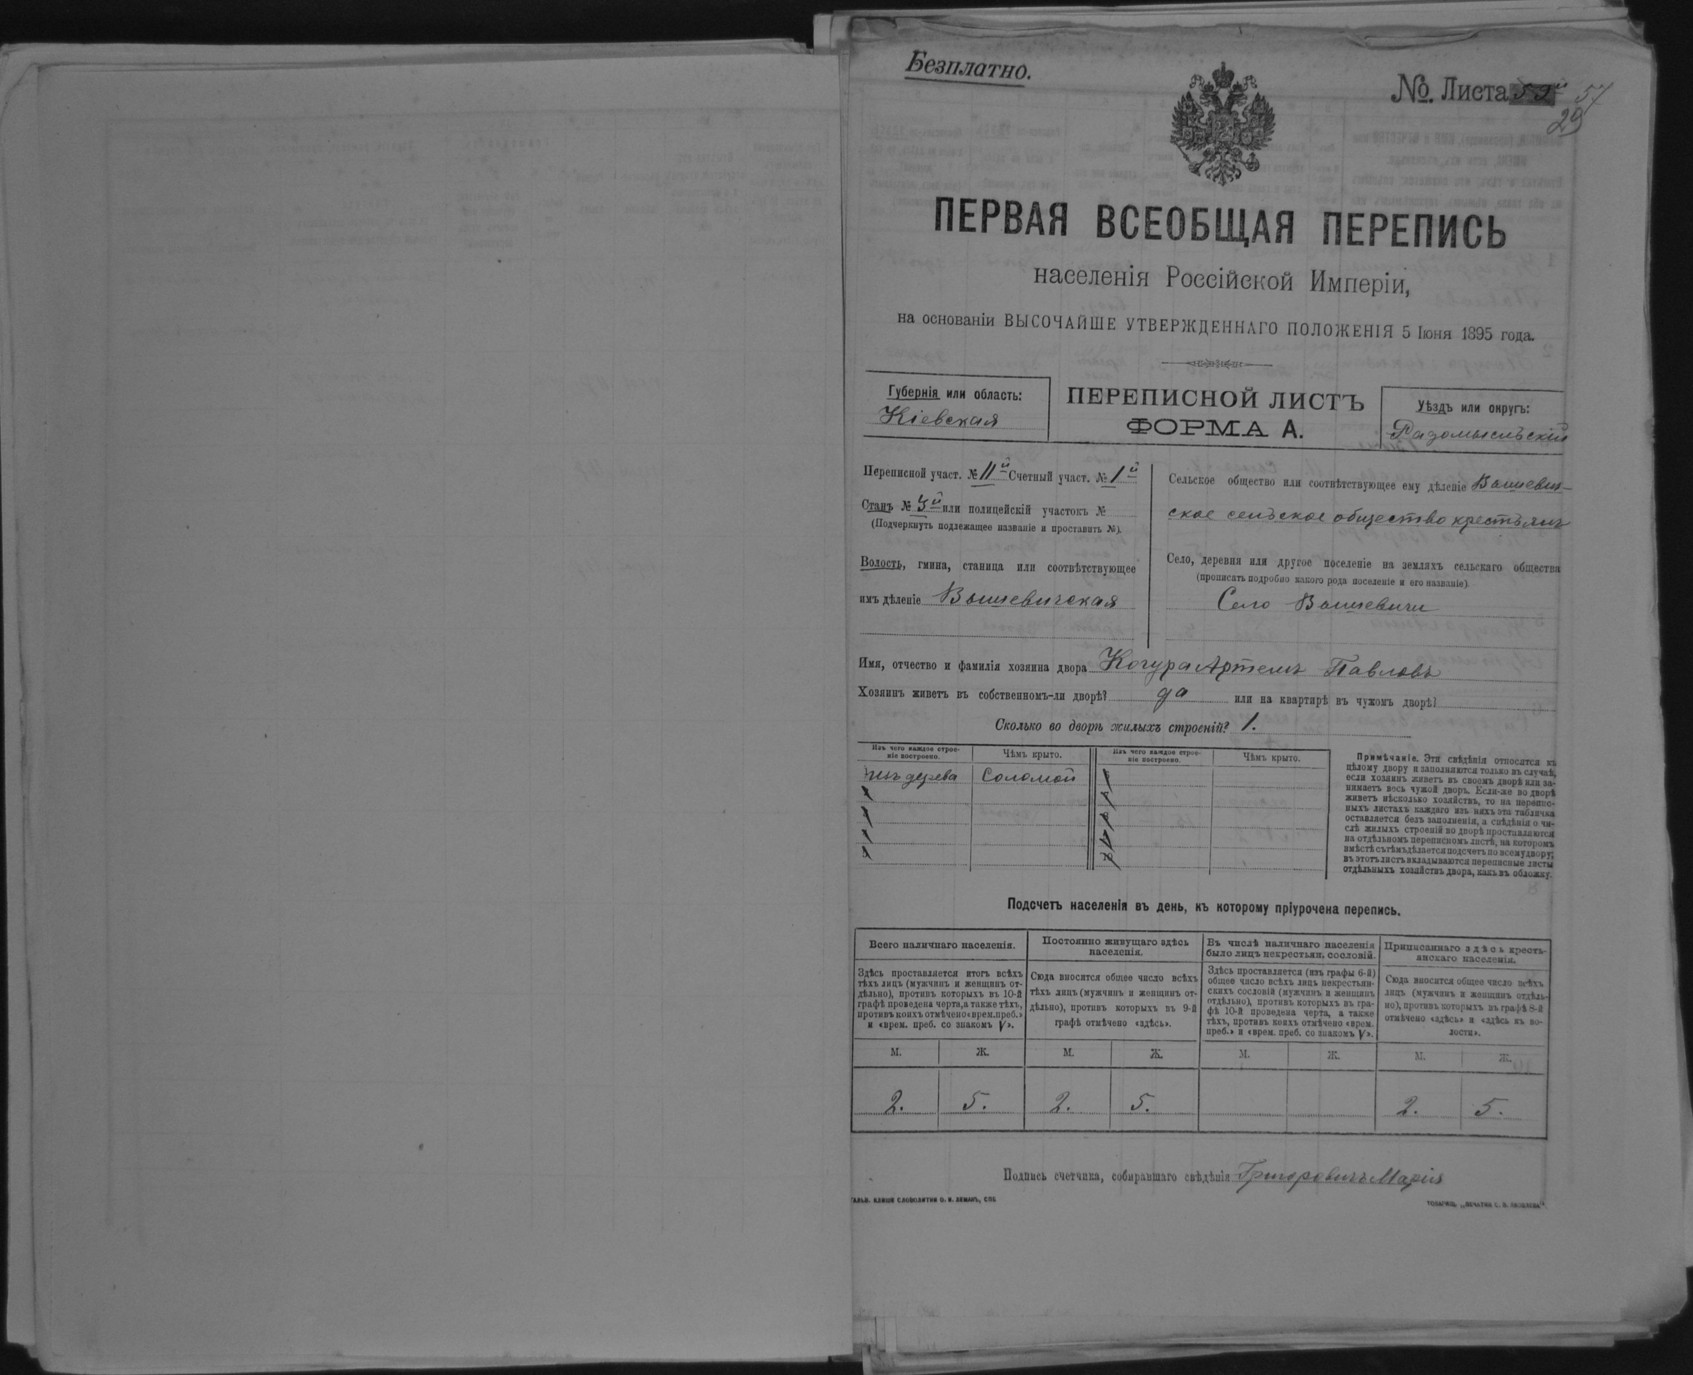 Безплатно.
№ Листа 57
29
ПЕРВАЯ ВСЕОБЩАЯ ПЕРЕПИСЬ
населенія Россійской Имперіи,
на основаніи ВЫСОЧАЙШЕ УТВЕРЖДЕННАГО ПОЛОЖЕНІЯ 5 Іюня 1895 года.
Губернія или область:
Кіевская
ПЕРЕПИСНОЙ ЛИСТЪ
ФОРМА А.
Уѣздъ или округъ:
Радомысльскій
Переписной участ. № 11й Счетный участ. № 1й
Станъ № 3й или полицейскій участокъ №
(Подчеркнуть подлежащее названіе и проставить №).
Волость, гмина, станица или соотвѣтствующее
имъ дѣленіе Вышевичская
Сельское общество или соотвѣтствующее ему дѣленіе Вышевич-
ское сельское общество крестьянъ
Село, деревня или другое поселеніе на земляхъ сельскаго общества
(прописать подробно какого рода поселеніе и его названіе)
Село Вышевичи
Имя, отчество и фамилія хозяина двора Когура Артемъ Павловъ
Хозяинъ живетъ въ собственномъ-ли дворѣ? да или на квартирѣ въ чужомъ дворѣ?
Сколько во дворѣ жилыхъ строеній? 1.
Изъ чего каждое строе-
ніе построено.
Чѣмъ крыто.
Изъ чего каждое строе-
ніе построено.
Чѣмъ крыто.
изъ дерева Соломой
Примѣчаніе. Эти свѣдѣнія относятся къ
цѣлому двору и заполняются только въ случаѣ,
если хозяинъ живетъ въ своемъ дворѣ или за-
нимаетъ весь чужой дворъ. Если-же во дворѣ
живетъ нѣсколько хозяйствъ, то на перепис-
ныхъ листахъ каждаго изъ нихъ эта табличка
оставляется безъ заполненія, а свѣдѣнія о чи-
слѣ жилыхъ строеній во дворѣ проставляются
на отдѣльномъ переписномъ листѣ, на которомъ
вмѣстѣ съ тѣмъ дѣлается подсчетъ по всему двору;
въ этотъ листъ вкладываются переписные листы
отдѣльныхъ хозяйствъ двора, какъ въ обложку.
Подсчетъ населенія въ день, къ которому пріурочена перепись.
Всего наличнаго населенія.
Здѣсь проставляется итогъ всѣхъ
тѣхъ лицъ (мужчинъ и женщинъ от-
дѣльно), противъ которыхъ въ 10-й
графѣ проведена черта, а также тѣхъ,
противъ коихъ отмѣчено «врем. преб.»
и «врем. преб. со знакомъ V».
Постоянно живущаго здѣсь
населенія.
Сюда вносится общее число всѣхъ
тѣхъ лицъ (мужчинъ и женщинъ от-
дѣльно), противъ которыхъ въ 9-й
графѣ отмѣчено «здѣсь».
Въ числѣ наличнаго населенія
было лицъ некрестьян. сословій.
Здѣсь проставляется (изъ графы 6-й)
общее число всѣхъ лицъ некрестьян-
скихъ сословій (мужчинъ и женщинъ
отдѣльно), противъ которыхъ въ гра-
фѣ 10-й проведена черта, а также
тѣхъ, противъ коихъ отмѣчено «врем.
преб.» и «врем. преб. со знакомъ V».
Приписаннаго здѣсь кресть-
янскаго населенія.
Сюда вносится общее число всѣхъ
лицъ (мужчинъ и женщинъ отдѣль-
но), противъ которыхъ въ графѣ 8-й
отмѣчено «здѣсь» и «здѣсь въ во-
лости».
М. Ж. М. Ж. М. Ж. М. Ж.
2. 5. 2. 5. 2. 5.
Подпись счетчика, собиравшаго свѣдѣнія Григоровичъ Марія